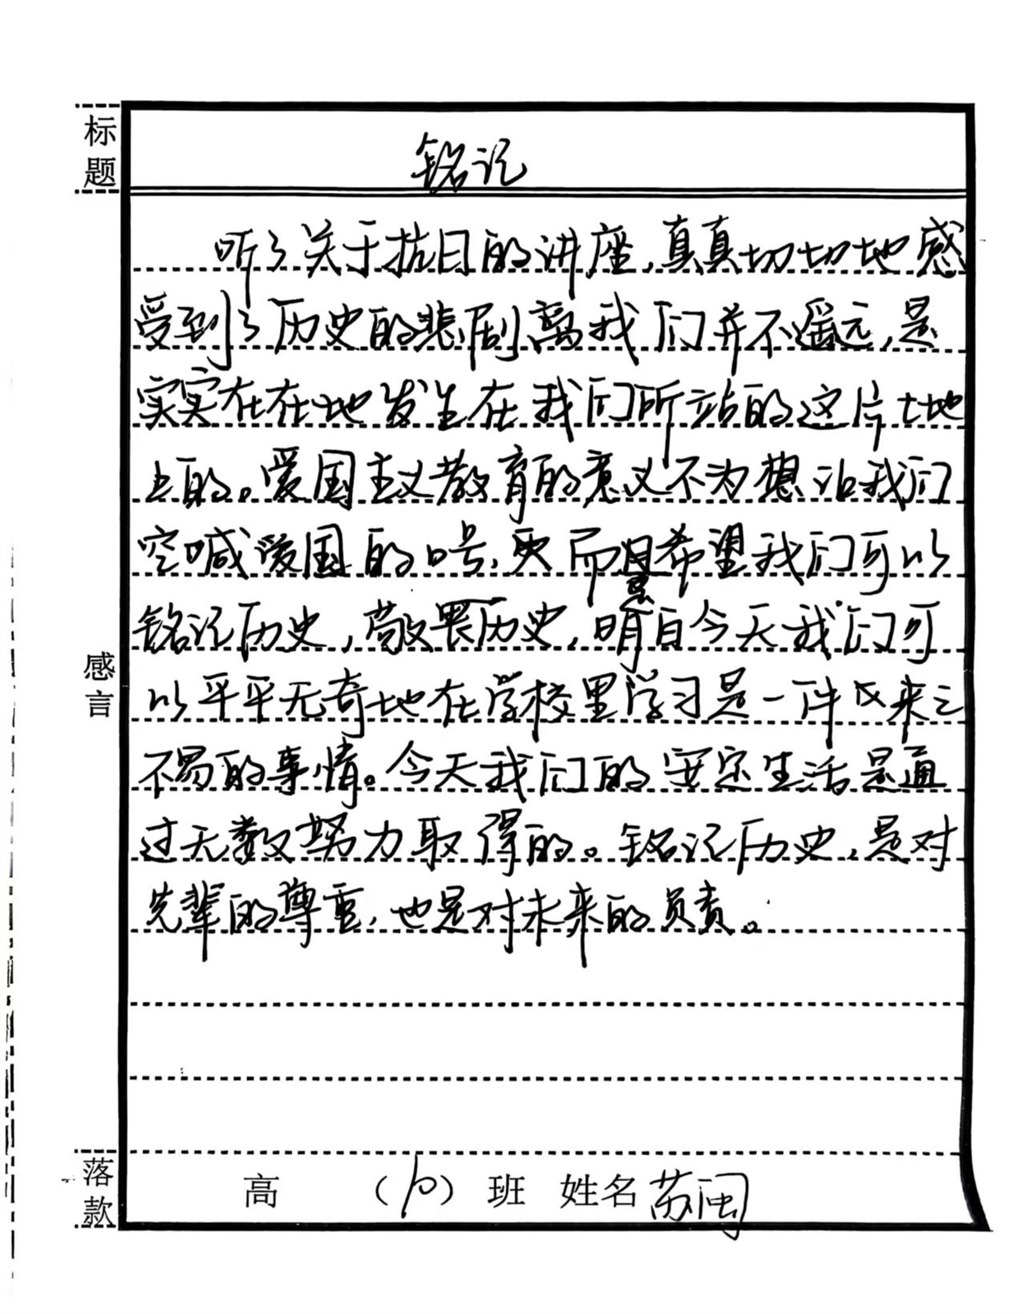 标题
铭记
听了关于抗日的讲座,真真切切地感
受到了历史的悲剧离我们并不遥远,是
实实在在地发生在我们所站的这片土地
上的。爱国主义教育的意义不为想让我们
空喊爱国的口号,更而是希望我们可以
铭记历史,敬畏历史,明白今天我们可
以平平无奇地在学校里学习是一件来之
不易的事情。今天我们的安定生活是通
过无数努力取得的。铭记历史,是对
先辈的尊重,也是对未来的负责。
感言
落款
高 (10) 班 姓名 苏闽